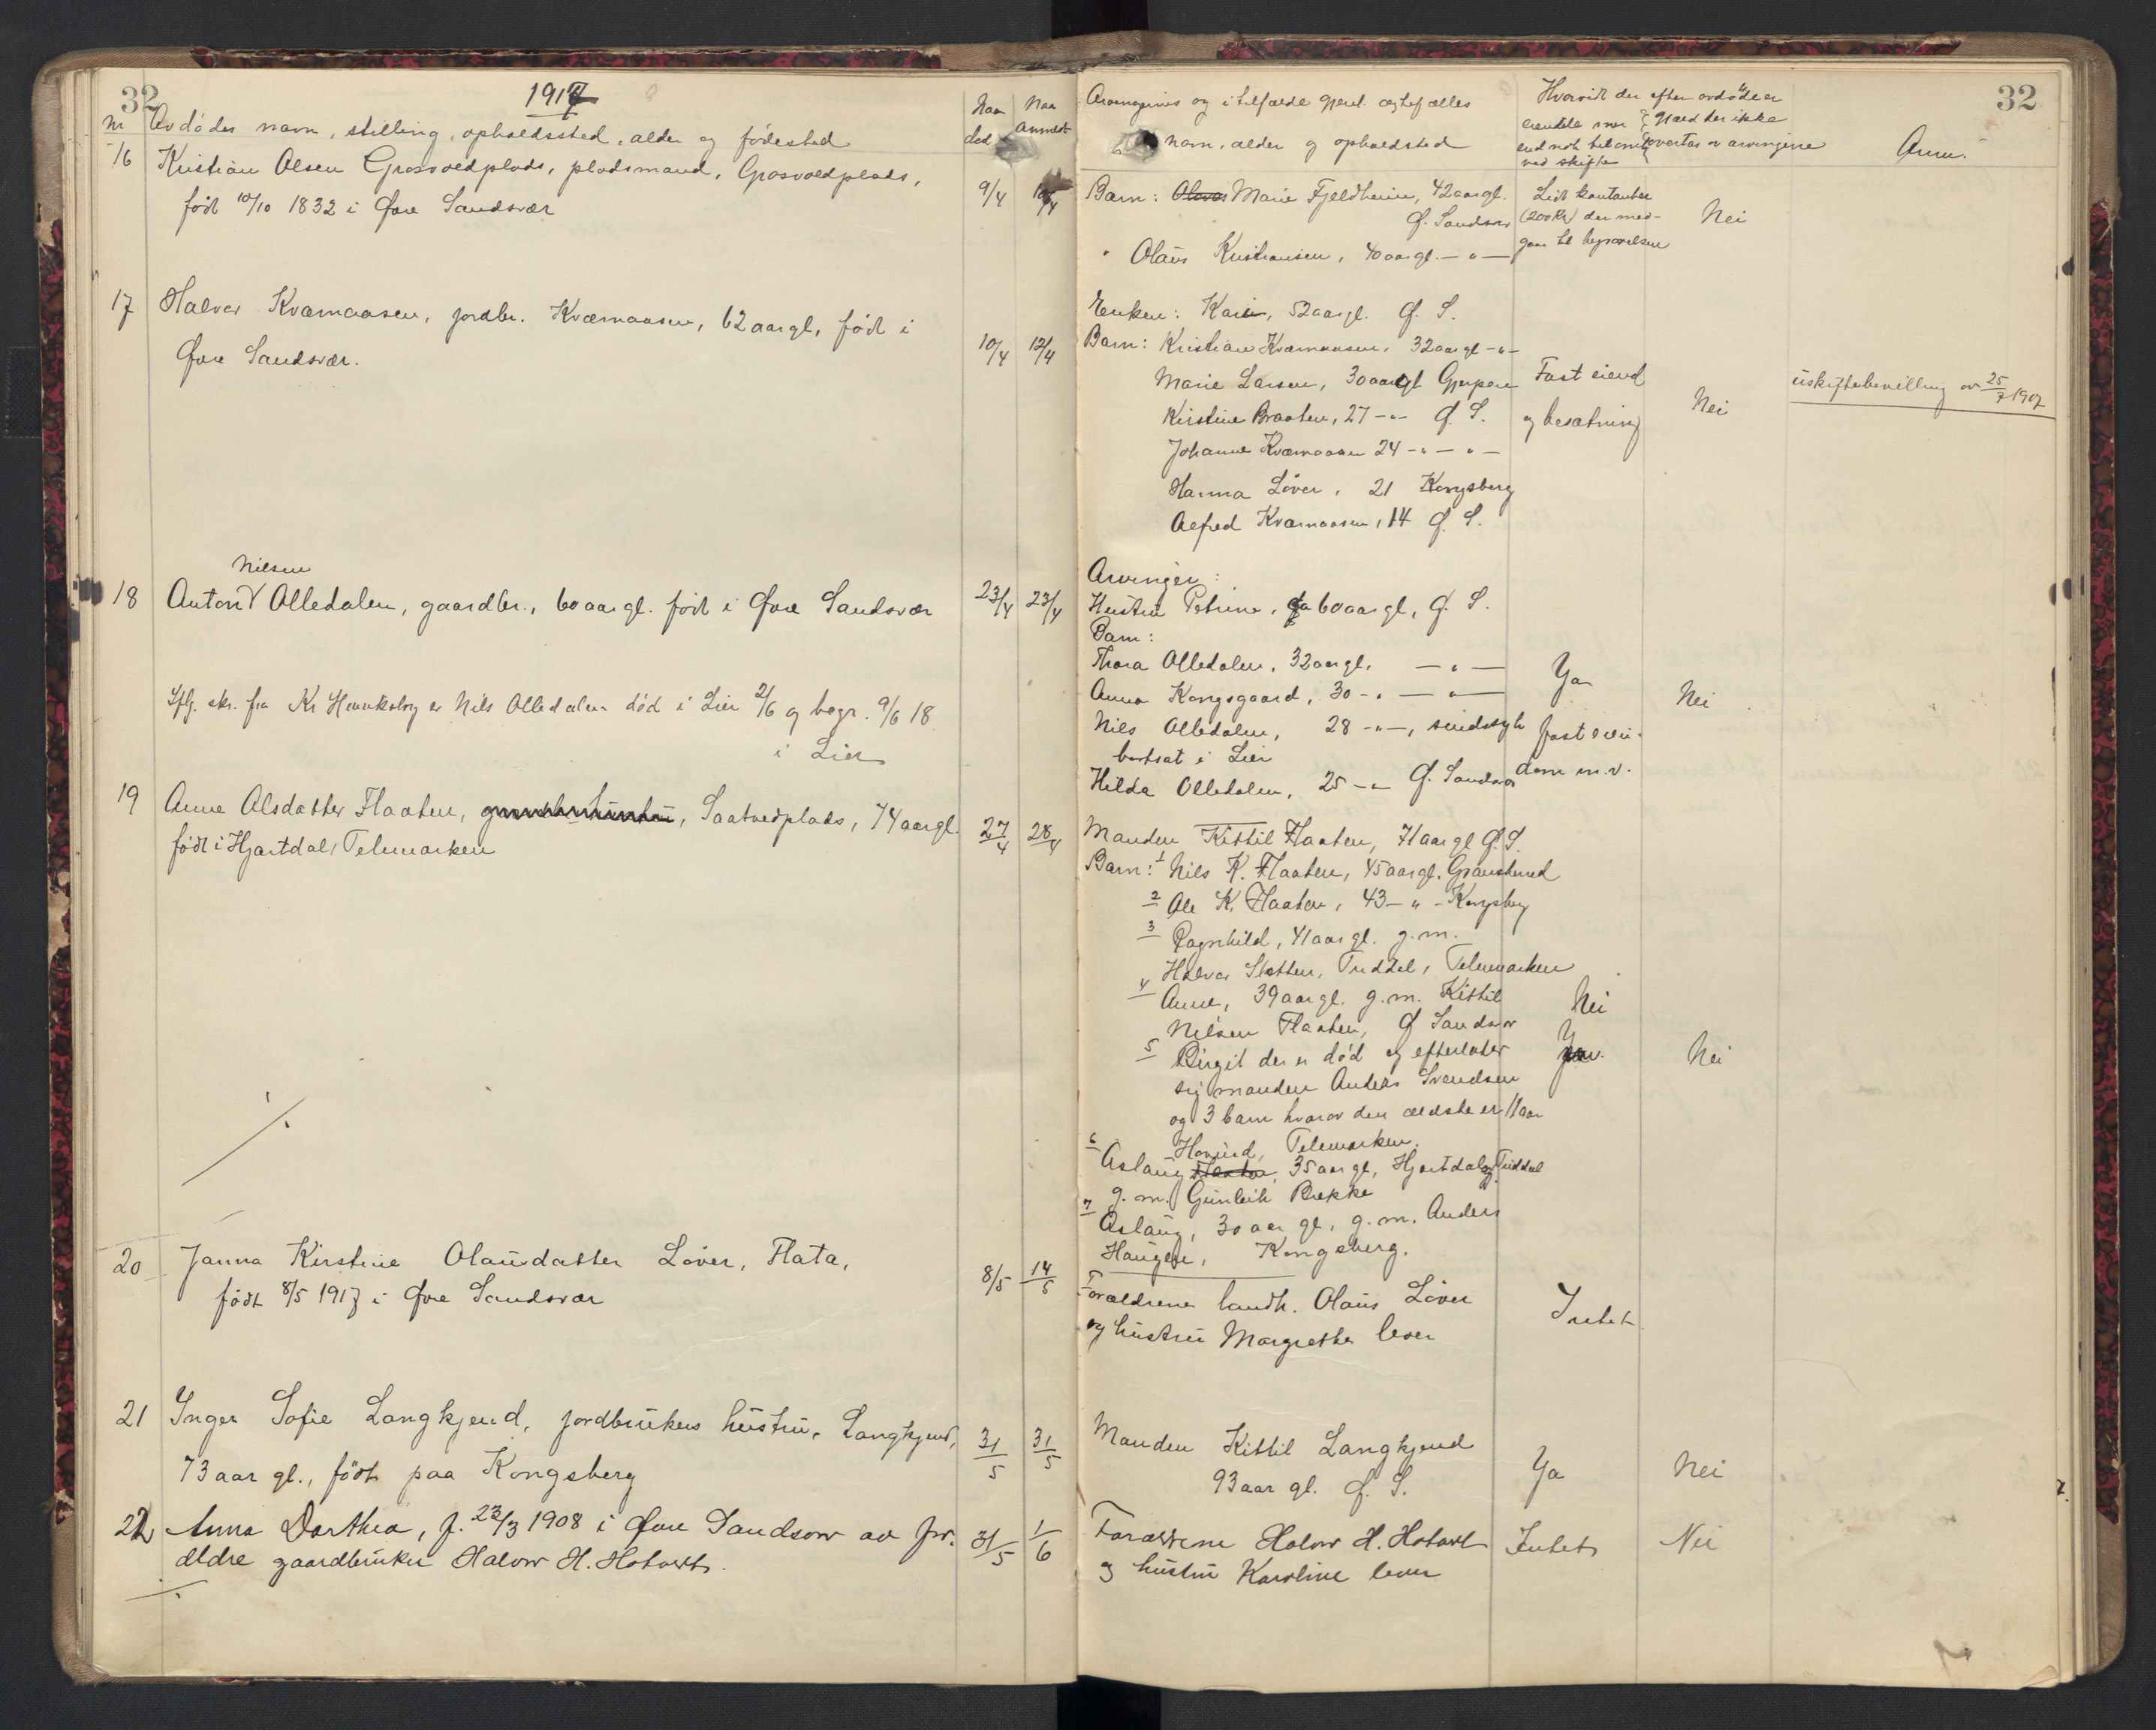 32
1917
Nr
Avdødes navn, stilling, opholdssted, alder og fødested
Naar død
Naar anmeldt
16
Kristian Olsen Grosvoldplads, pladsmand, Grosvoldplads,
født 10/10 1832 i Øvre Sandsvær
9/4
17
Halvor Kværnaasen, jordbr. Kværnaasen, 62 aar gl, født i
Øvre Sandsvær.
10/4
12/4
Nilsen
18
Anton Olledalen, gaardbr., 60 aar gl. født i Øvre Sandsvær
23/4
23/4
Iflg. skr. fra Kr Haukeborg er Nils Olledalen død i Lier 2/6 og begr. 9/6 18
i Lier
19
Anne Olsdatter Flaaten, Saatvedplads, 74 aar gl.
født i Hjartdal, Telemarken
27/4
28/4
20
Janna Kirstine Olausdatter Løver, Flata,
født 8/5 1917 i Øvre Sandsvær
8/5
14/5
21
Inger Sofie Langkjend, jordbrukers hustru, Langkjend,
73 aar gl., født paa Kongsberg
31/5
31/5
22
Anna Dorthea, f. 23/3 1908 i Øvre Sandsvær av for-
ældre gaardbruker Halvor H. Hotvedt.
31/5
1/6
32
Arvingernes og i tilfælde gjenl. ægtefælles
navn, alder og opholdssted
Hvorvidt der efter avdøde er
eiendele mer
end nok til
ved skifte
Gjæld der ikke
overtas av arvingerne
Anm.
Barn: Olava Marie Fjeldheim, 42 aar gl.
Ø. Sandsvær
" Olaus Kristiansen, 40 aar gl. — " —
Lidt kontanter
(200 Kr) der med-
gaar til begravelsen
Nei
Enken: Kari, 52 aar gl. Ø. S.
Barn: Kristian Kværnaasen, 32 aar gl - " -
Marie Larsen, 30 aar gl Gjerpen
Kirstine Braaten, 27 - " - Ø. S.
Johanne Kværnaasen 24 - " - " -
Hanna Løver, 21 Kongsberg
Alfred Kværnaasen, 14 Ø. S.
Fast eiend
og besætning
Nei
uskiftebevilling av 25/7 1907
Arvinger:
Hustru Petrine, 60 aar gl, Ø. S.
Barn:
Thora Olledalen, 32 aar gl. — " —
Anna Kongsgaard, 30 - " — " —
Nils Olledalen, 28 - " -, sindssyk
bortsat i Lier
Hilda Olledalen, 25 - " Ø. Sandsvær
Ja
fast eien-
dom m.v.
Nei
Manden Kittil Flaaten, 71 aar gl Ø. S.
Barn: 1 Nils K. Flaaten, 45 aar gl. Gransherred
2 Ole K. Flaaten, 43 - " - Kongsberg
3 Ragnhild, 41 aar gl. g. m.
Halvor Sletten, Tuddal, Telemarken
4 Anne, 39 aar gl. g. m. Kittil
Nilsen Flaaten, Ø Sandsvær
5 Birgit der er død og efterlater
sig manden Anders Svendsen
og 3 barn hvorav den ældste er 11 aar
Hovind, Telemarken.
6 Aslaug Flaaten, 35 aar gl, Hjartdal og Tuddal
g. m. Gunleik Bekke
7 Aslaug, 30 aar gl, g. m. Anders
Haugen, Kongsberg.
Nei
Nei
Forældrene landh. Olaus Løver
og hustru Margrethe lever
Intet
Manden Kittil Langkjend
93 aar gl. Ø. S.
Ja
Nei
Forældrene Halvor H. Hotvedt
og hustru Karoline lever
Intet
Nei